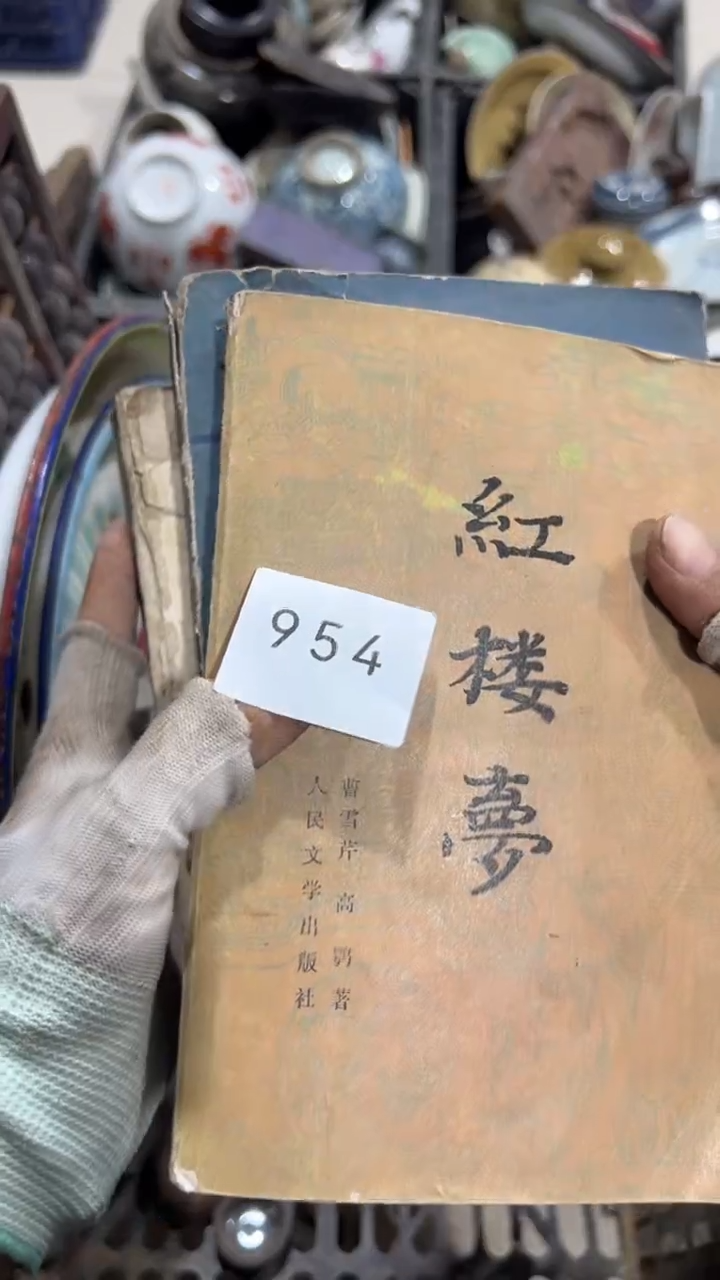 紅楼夢
954
曹雪芹 高鹗著
人民文学出版社